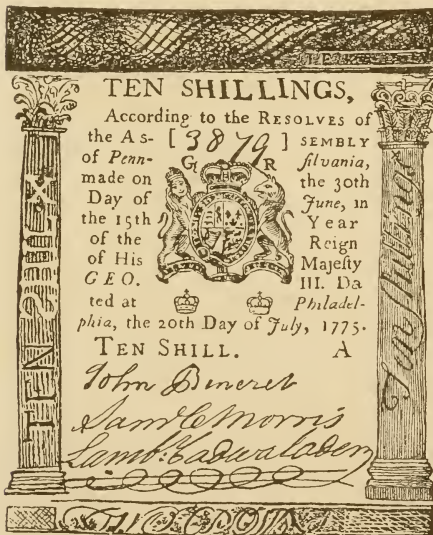 TEN SHILLINGS,
According to the RESOLVES of
the As- [ 3879 ] SEMBLY
of Penn- G R ſilvania,
made on the 30th
Day of June, in
the 15th Year
of the Reign
of His Majeſty
GEO. III. Da
ted at Philadel-
phia, the 20th Day of July, 1775.
TEN SHILL. A
John Benezet
Saml C Morris
Lambt. Cadwalader
TEN SHILL
Ten Shillings